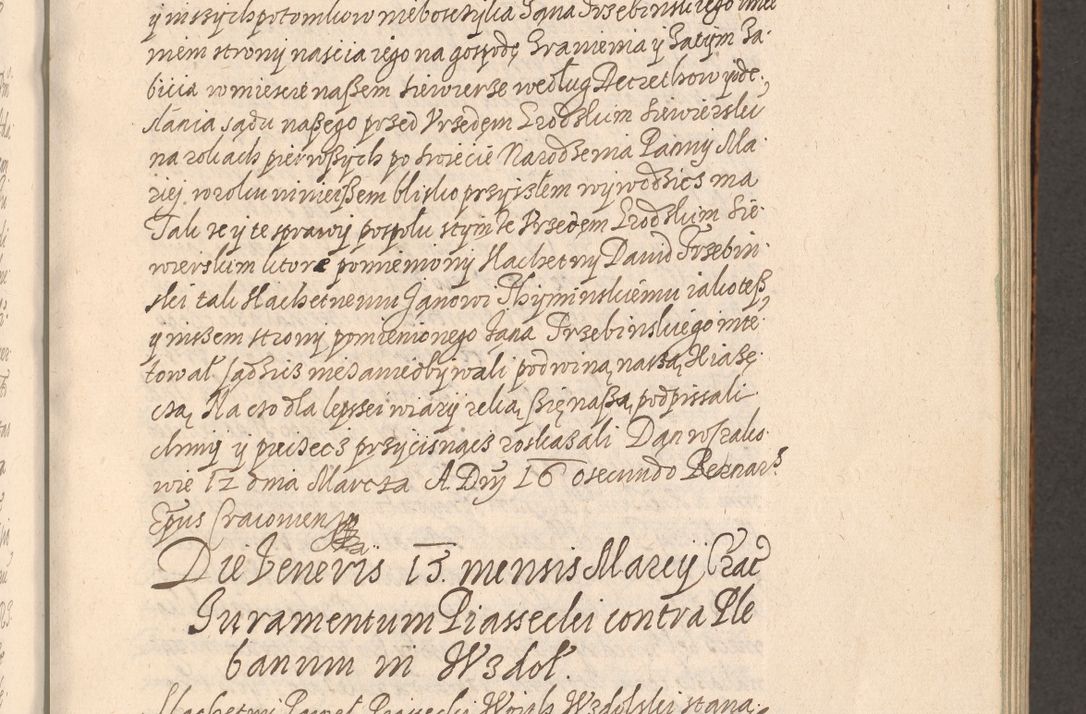 y inszych potomkow nieboszczyka Jana Trzebinskiego imie
niem strony naścia iego na gospodę Zranienia y Zatym Za
bicia w miescie naszem Siewierze według Decrethow y ode
słania sądu naszego przed Vrzędem Grodskim Siewierski
na rokach pierwszych po Swięcie Narodzenia Panny Ma
riej w roku ninieiszem blisko przyszłem wywodzics ma
Tak że y te sprawy pospołu s tymże Vrzędem Grodskim Sie
wierskim ktore pomieniony Slachetny Dawid Trzebin
ski tak Slachetnemu Janowi Thyminskiemu iako tesz
y inszem strony pomienionego Jana Trzebinskiego inte
tował sądzics nie zaniedbywali pod winą naszą Xiążę
czą Na czo dla lepszei wiary ręką się naszą podpissali
chmy y pieczecz przycisnącz roskazali Dan w Krako
wie 12 dnia Marcza A Dnj 16 0 secundo Bernars
Epus Cracouien
Die Veneris 15 mensis Marcij Crac
Juramentum Piassecki contra Ple
banum in Wzdoł.
Slachetny Paweł Piasecki Woith Wzdolski stana